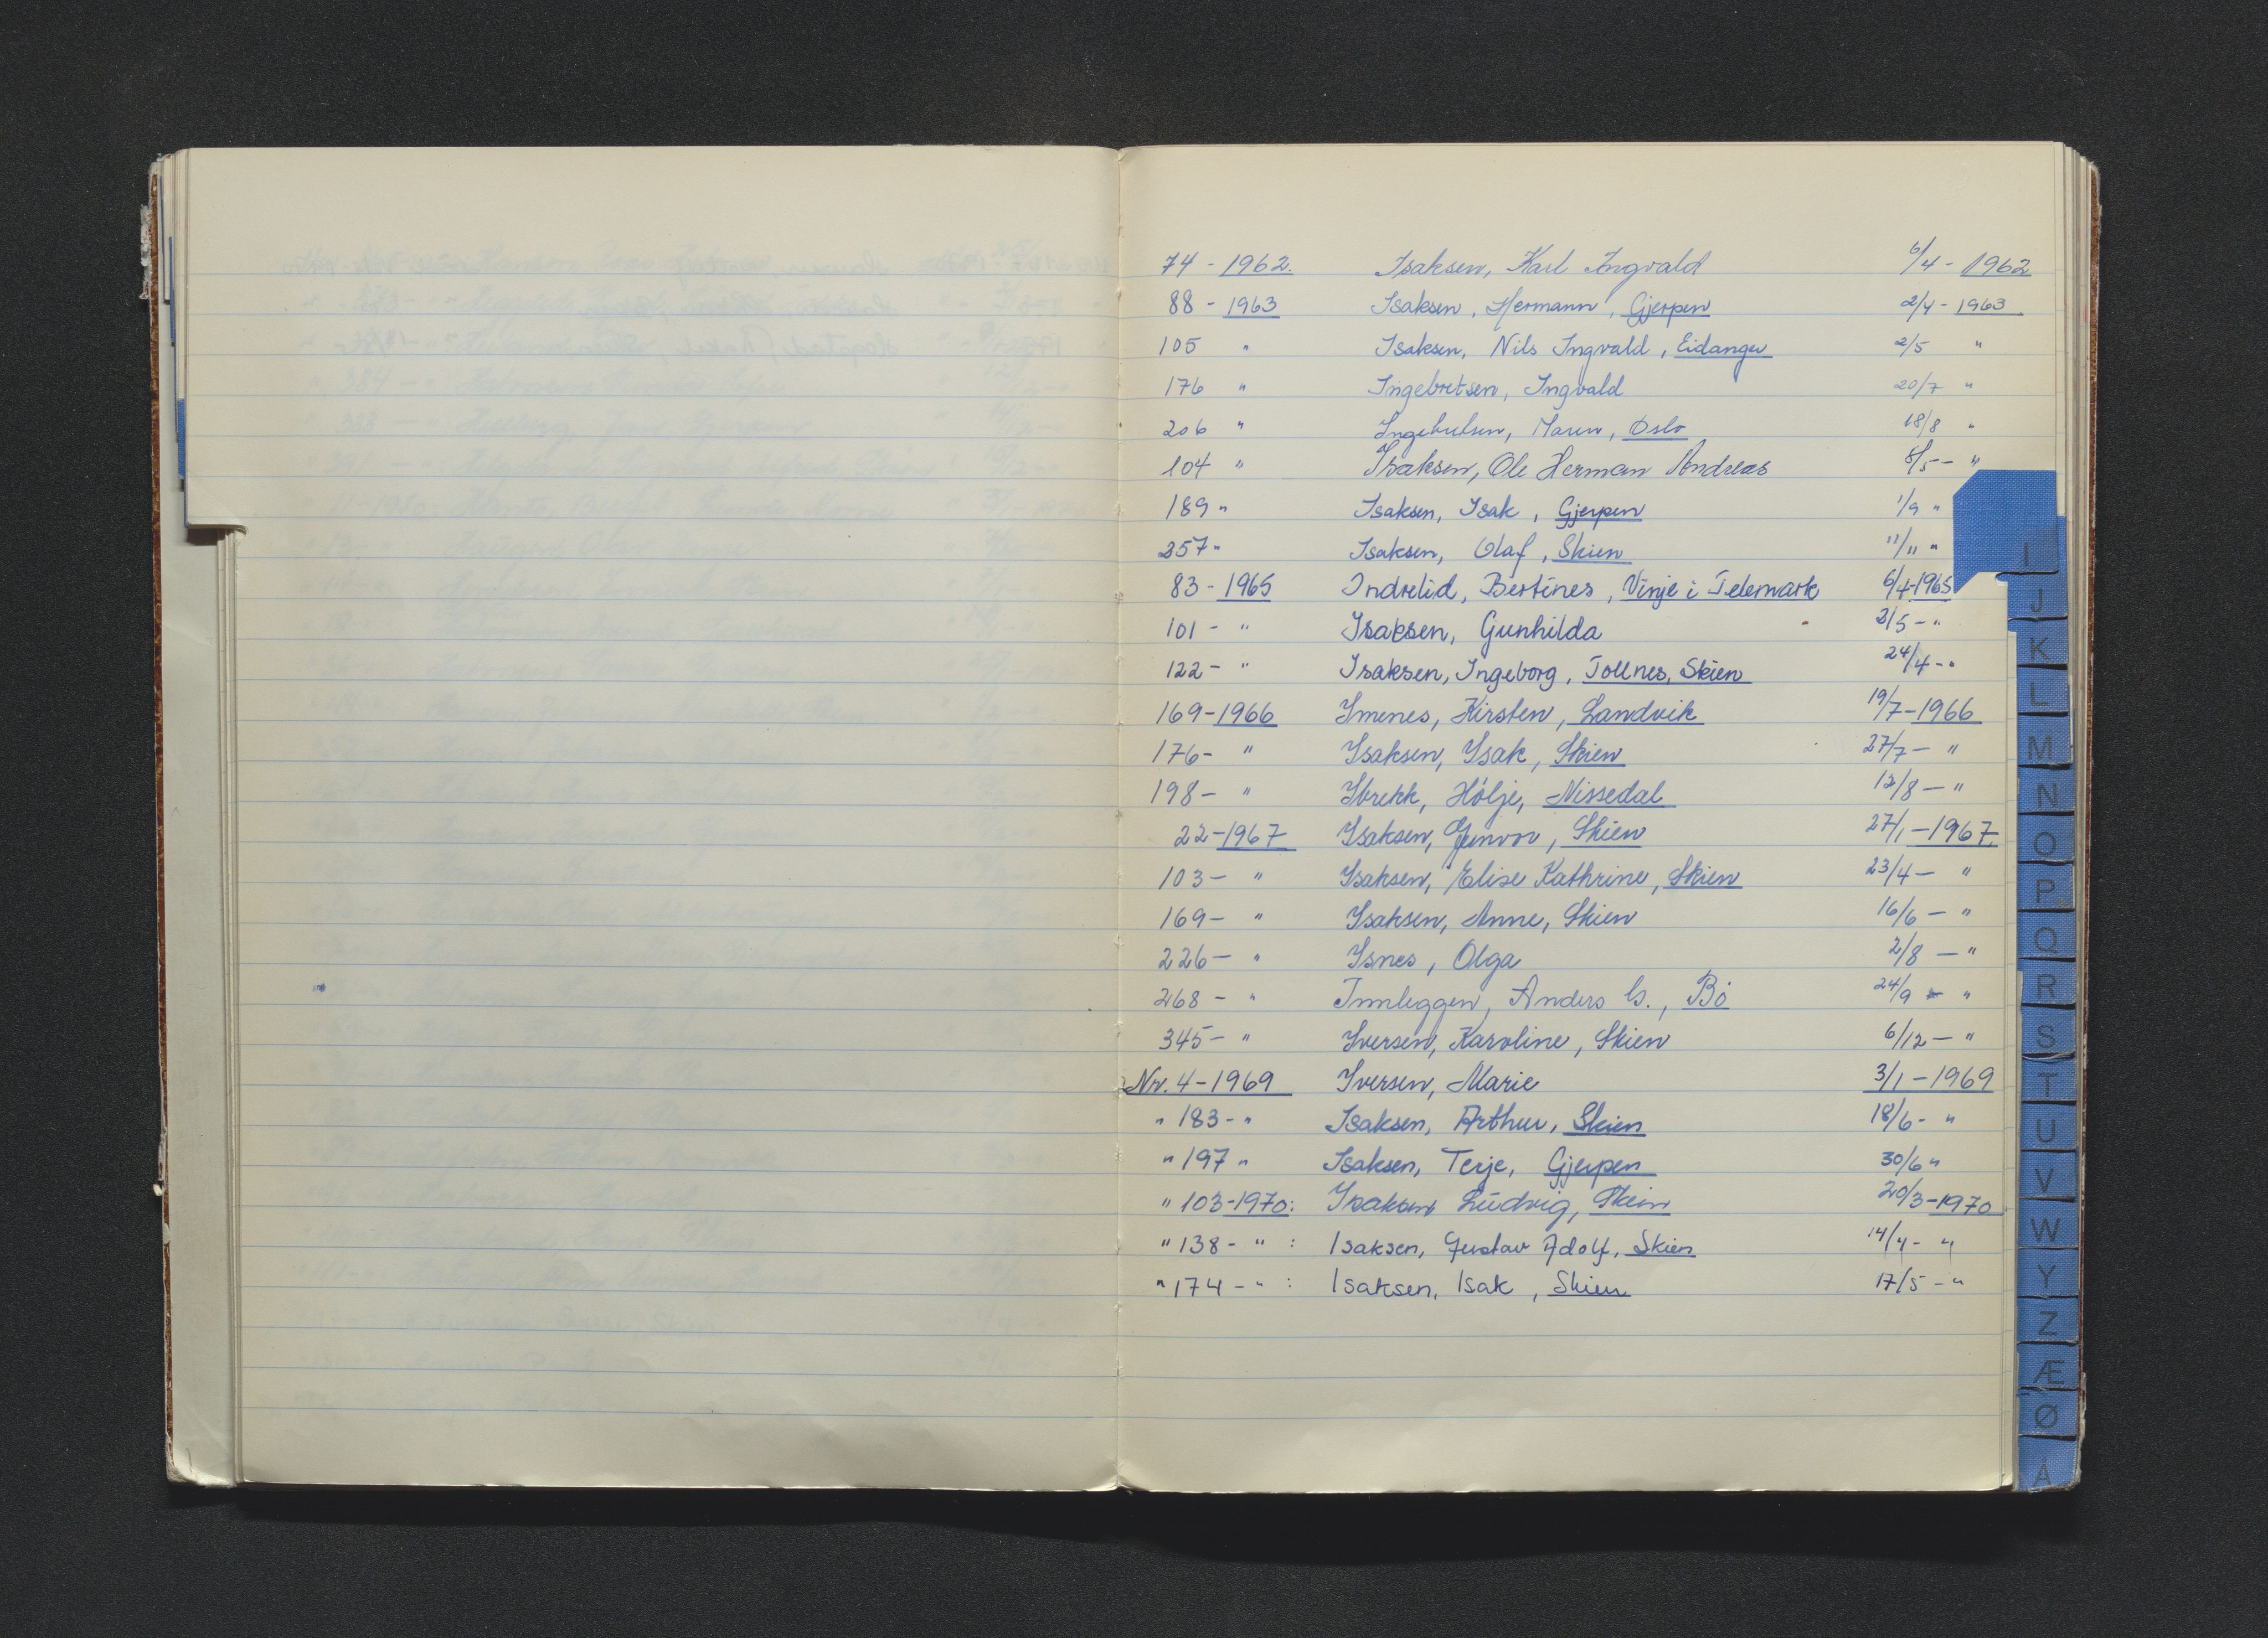 74 - 1962. Isaksen, Karl Ingvald 6/4 - 1962
88 - 1963 Isaksen, Hermann, Gjerpen 2/4 - 1963
105 " Isaksen, Nils Ingvald, Eidanger 2/5 "
176 " Ingebretsen, Ingvald 20/7 "
206 " Ingebretsen, Maren, Oslo 18/8 "
104 " Isaksen, Ole Herman Andreas 8/5 - "
189 " Isaksen, Isak, Gjerpen 1/9 "
257 " Isaksen, Olaf, Skien 11/11 "
83 - 1965 Indrelid, Bertines, Vinje i Telemark 6/4-1965
101 - " Isaksen, Gunhilda 2/5 - "
122 - " Isaksen, Ingeborg, Tollnes, Skien 24/4 - "
169-1966 Imenes, Kirsten, Landvik 19/7-1966
176- " Isaksen, Isak, Skien 27/7 - "
198- " Ibrekk, Hölje, Nissedal 12/8 - "
22-1967 Isaksen, Gunvor, Skien 27/1 - 1967.
103- " Isaksen, Elise Kathrine, Skien 23/4 - "
169- " Isaksen, Anne, Skien 16/6 - "
226- " Isnes, Olga 2/8 - "
268 - " Innleggen, Anders G., Bö 24/9 - "
345- " Iversen, Karoline, Skien 6/12 - "
Nr. 4-1969 Iversen, Marie 3/1 - 1969
" 183 - " Isaksen, Arthur, Skien 18/6 - "
" 197 " Isaksen, Terje, Gjerpen 30/6 "
" 103-1970: Isaksen Ludvig, Skien 20/3-1970
" 138 - " : Isaksen, Gustav Adolf, Skien 14/4 - "
" 174 - " : Isaksen, Isak, Skien 17/5 - "
I
J
K
L
M
N
O
P
Q
R
S
T
U
V
W
Y
Z
Æ
Ø
Å